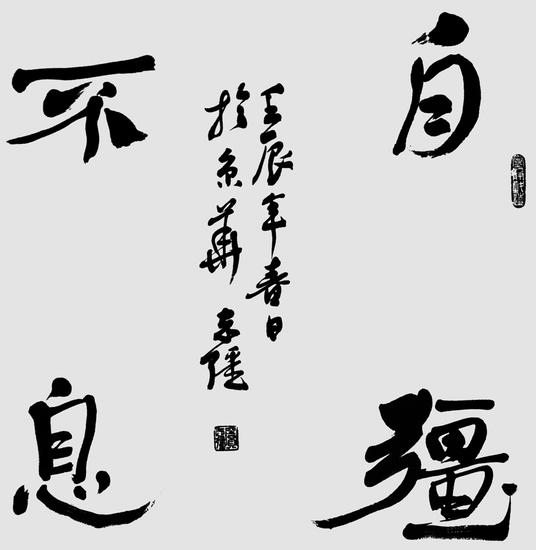 自彊
不息
壬辰年春日
於京華